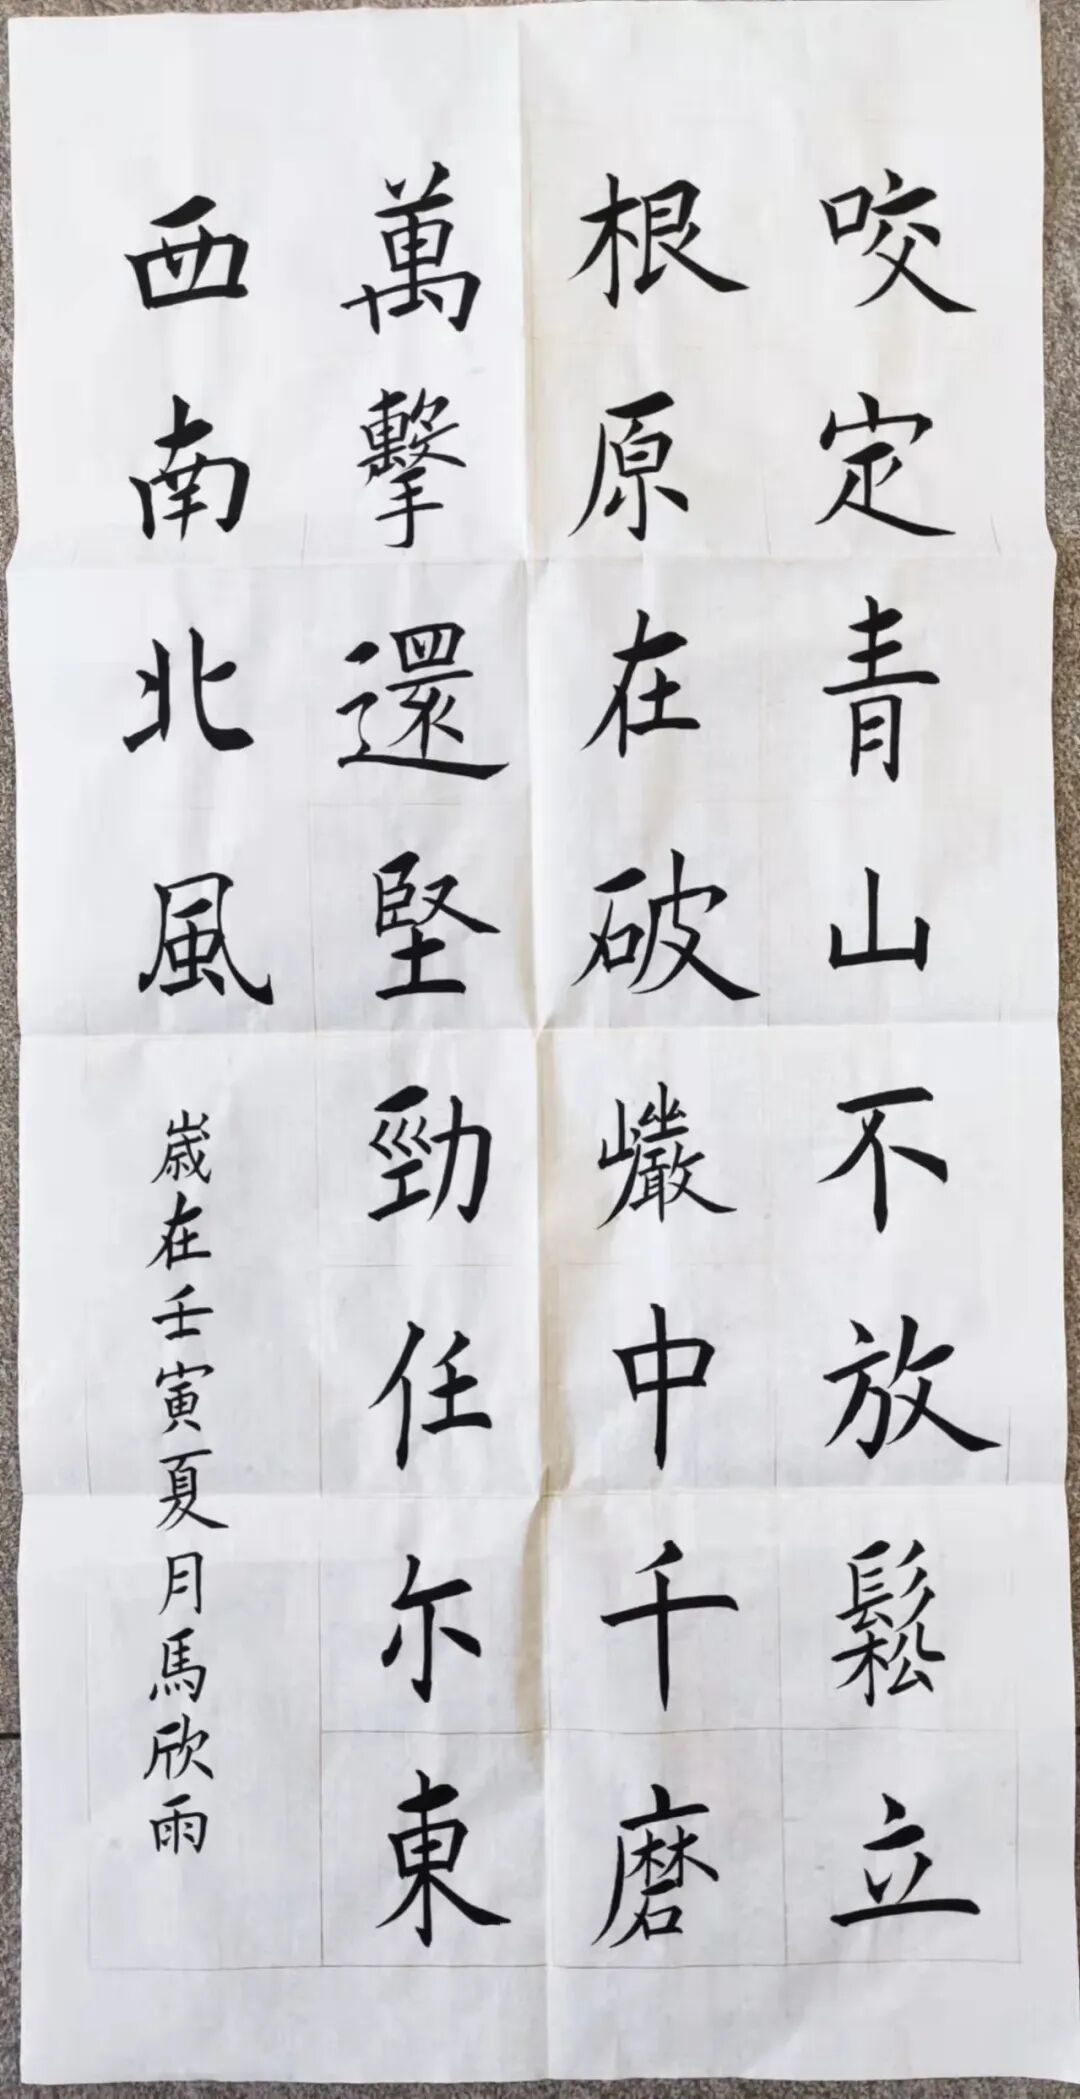 咬定青山不放鬆立
根原在破巖中千磨
萬擊還堅勁任尔東
西南北風
歲在壬寅夏月馬欣雨